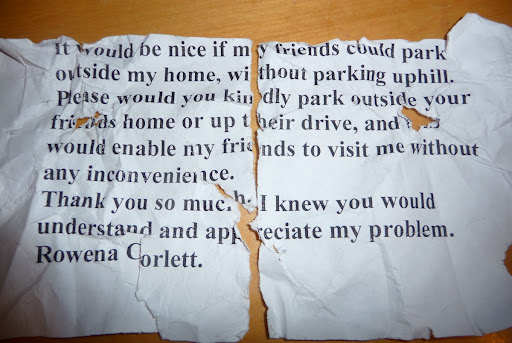 It would be nice if my friends could park
outside my home, without parking uphill.
Please would you kindly park outside your
friends home or up their drive, and this
would enable my friends to visit me without
any inconvenience.
Thank you so much. I knew you would
understand and appreciate my problem.
Rowena Corlett.